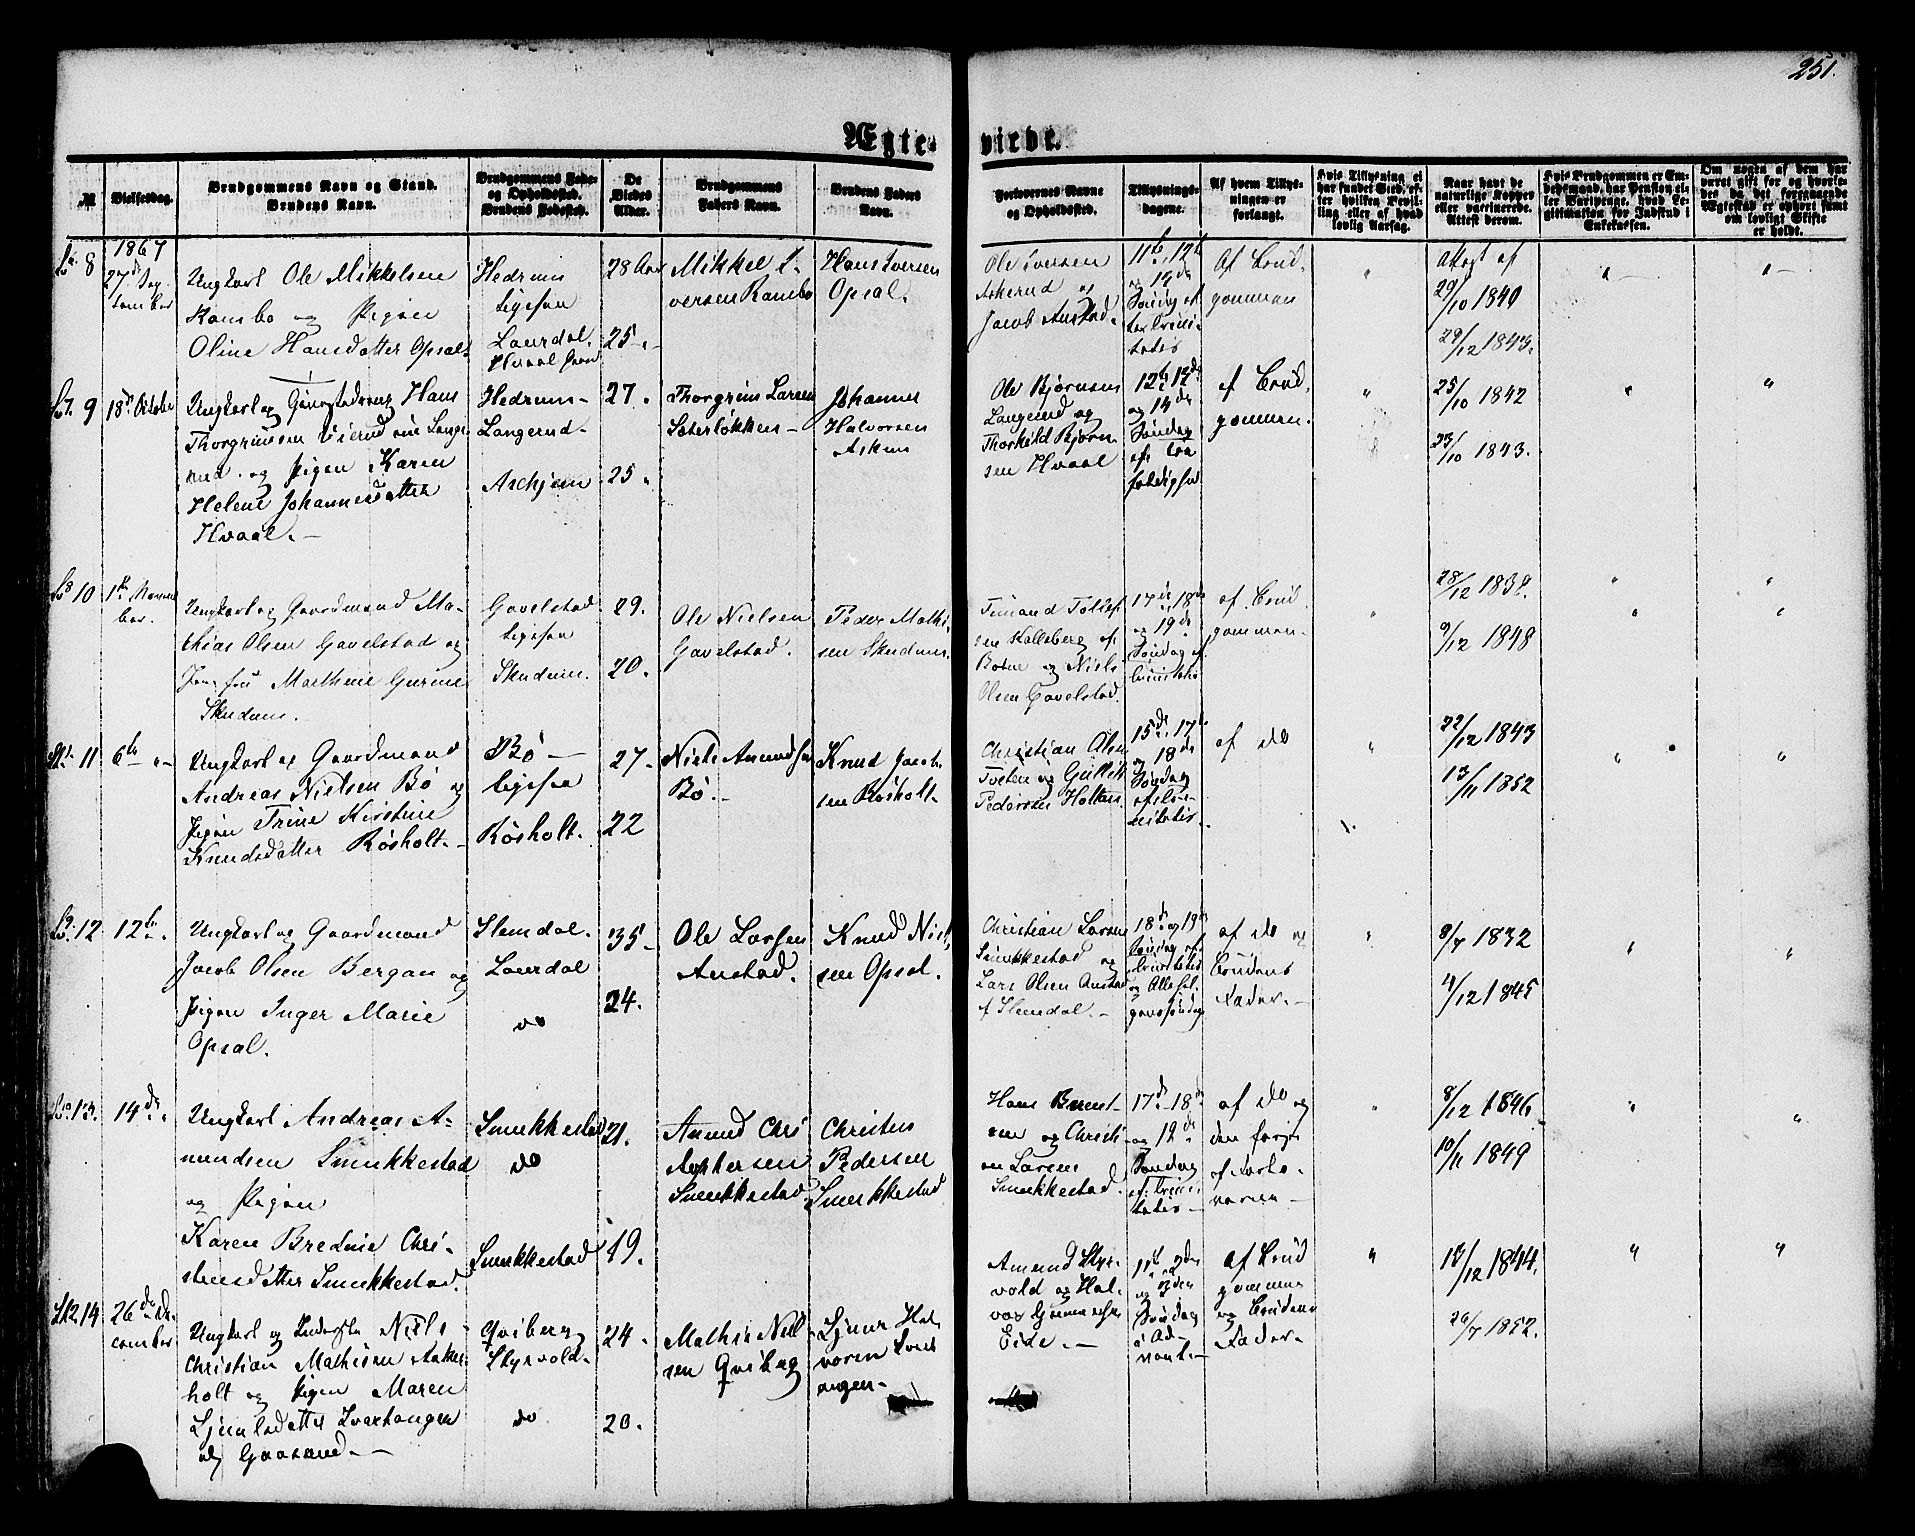 251.
Ægte-
viede.
№
Vielsesdag.
Brudgommens Navn og Stand.
Brudens Navn.
Brudgommens Føde-
og Opholdssted.
Brudens Fødested.
De
Viedes
Alder.
Brudgommens
Faders Navn.
Brudens Faders
Navn.
Forlovernes Navne
og Opholdssted.
Tillysnings-
dagene.
Af hvem Tillys-
ningen er
forlangt.
Hvis Tillysning ei
har fundet Sted, ef-
ter hvilken Bevil-
ling eller af hvad
lovlig Aarsag.
Naar havt de
naturlige Kopper
eller vaccinerede.
Attest derom.
Hvis Brudgommen er Em-
bedsmand, har Pension el-
ler Vartpenge, hvad Le-
gitimation for Indskud i
Enkekassen.
Om nogen af dem har
været gift før og hvorle-
des og det foregaaende
Ægteskab er ophørt samt
om lovligt Skifte
er holdt.
8
1867
27de Sep-
tember
Ungkarl Ole Mikkelsen
Rambo og Pigen
Oline Hansdatter Opsal
Hedrum
ligesaa
Laurdal
Hvaal
28 Aar
25
Mikkel I-
versen Rambo
Hans Iversen
Opsal.
Ole Iversen
Askerud og
Jacob Anstad.
11te, 12te
og
Søndag ef-
ter Trini-
tatis
Af Brud-
gommen
Attest af
29/10 1840
29/12 1843.
9
18de Oktober
Ungkarl og Hans
Thorgrimsen
og Pigen Karen
Helene Johannesdatter
Hvaal.
Hedrum-
Langerud-
Aschjem
27.
25.
Thorgrim Larsen
Sæterløkken
Johannes
Halvorsen
Askem
Ole Bjørnsen
Langerud og
Thorkild Bjørn-
sen Hvaal
12te
og 14de
Søndag
af Brud-
gommen.
25/10 1842
23/10 1843.
10
1ste Novem-
ber.
Ungkarl og Gaardmand Ma-
thias Olsen Gavelstad og
Jomfru Mathine Gurine
Skudum.
Gavelstad
ligesaa
Skudum.
29.
20.
Ole Nielsen
Gavelstad.
Peder Mathi-
sen Skudum.
sen Kalleberg af
og Niels
Olsen Gavelstad.
17de, 18de
og 19de
Søndag ef.
Trinitatis
af Brud-
gommen-
28/12 1839.
9/12 1848
11
6te
Ungkarl og Gaardmand
Andreas Nielsen Bø og
Pigen Trine Kirstine
Knudsdatter Røsholt.
Bø
ligesaa
Røsholt.
27
22
Niels Amundsen
Bø.
Knud Jacob-
sen Røsholt.
Christian Olsen
Tveten og Gullik
Pedersen Holtan.
15de, 17de
og 18de
Søndag
af do
22/12 1843
13/11 1852
12
12te
Ungkarl og Gaardmand
Jacob Olsen Bergan og
Pigen Inger Marie
Opsal.
Slemdal.
Laurdal
do
35
24.
Ole Larsen
Anstad.
Knud Niel-
sen Opsal.
Christian Larsen
Smukkestad og
Lars Olsen Anstad
af Slemdal.
18de og 19de
Søndag ef.
Trinitatis
og Allehel-
gensSøndag
af do og
Brudens
Fader.
8/7 1832
4/12 1845
13.
14de
Ungkarl Andreas A-
mundsen Smukkestad
og Pigen
Karen Bredine Chri-
stensdatter Smukkestad.
Smukkestad
do
Smukkestad
21.
19.
Amund Chri
stophersen
Smukkestad
Christen
Pedersen
Smukkestad
Hans Bernt-
sen og Christi-
an Larsen
Smukkestad.
17de 18de
og 19de
Søndag
ef. Trini-
tatis
af do og
8/12 1846.
10/11 1849
14
26de De-
cember
Ungkarl og Inderst Niels
Christian Mathisen Aaker-
holt og Pigen Maren
Ljøsulsdatter Svartangen
af Gaaserud.
Qviberg
Styrvold
do
24.
20.
Mathis Niel-
sen Qviberg
Hal-
vorsen Svart
angen
Amund Styr-
vold og Hal-
vor
Eide.
1ste, 2den
og 3den
Søndag
i Ad-
vent
af Brud
gommen
og Brudens
Fader
17/12 1844.
26/7 1852.